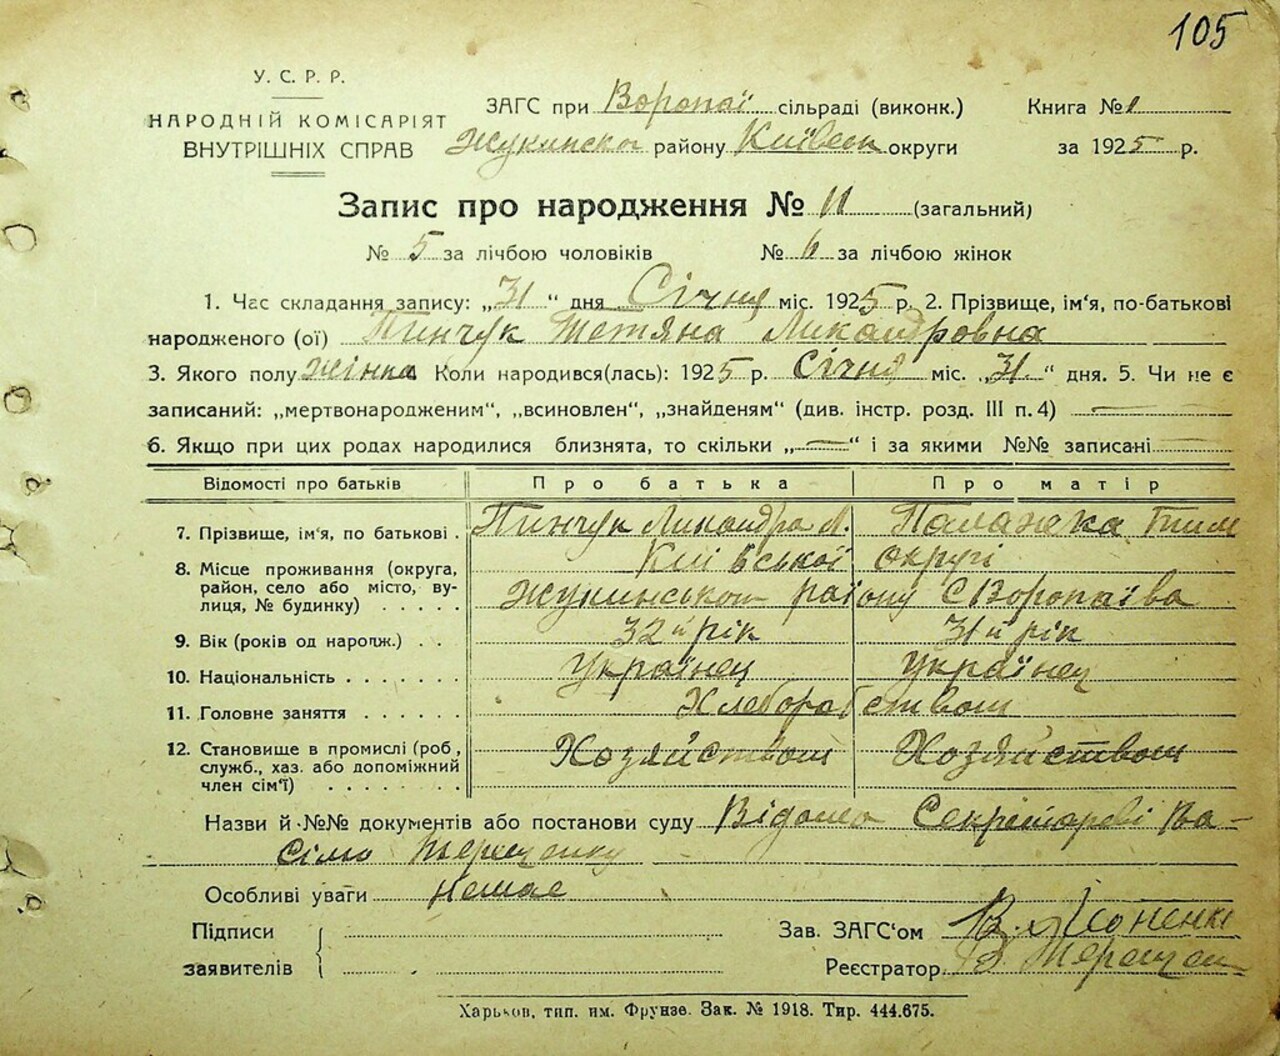 105
У. С. Р. Р.
НАРОДНІЙ КОМІСАРІЯТ
ВНУТРІШНІХ СПРАВ
ЗАГС при Воропаї сільраді (виконк.) Книга № 1
Жукинско району Київськ округи за 1925 р.
Запис про народження № 11 (загальний)
№ 5 за лічбою чоловіків № 6 за лічбою жінок
1. Час складання запису: „31“ дня Січня міс. 1925 р. 2. Прізвище, ім'я, по-батькові
народженого (ої) Пинчук Тетяна Ликандровна
3. Якого полу жінка Коли народився(лась): 1925 р. Січня міс. „31“ дня. 5. Чи не є
записаний: „мертвонародженим“, „всиновлен“, „знайденям“ (див. інстр. розд. III п. 4) —
6. Якщо при цих родах народилися близнята, то скільки „—“ і за якими №№ записані
Відомості про батьків Про батька Про матір
7. Прізвище, ім'я, по батькові . Пинчук Ликандра Л. Палажка Тим
8. Місце проживання (округа, Київської округі
район, село або місто, ву-
лиця, № будинку) . . . . . Жукинського району С Воропаїва
9. Вік (років од народж.) . . 32й рік 31й рік
10. Національність . . . . . . . Українец Українец
11. Головне заняття . . . . . . Хлеборобством
12. Становище в промислі (роб., Хозяйством Хозяйством
служб., хаз. або допоміжний
член сім'ї) . . . . . . .
Назви й №№ документів або постанови суду Відомо Секретареві
Терещенку
Особливі уваги немає
Підписи
заявителів
Зав. ЗАГС'ом
Реєстратор
Харьков, тип. им. Фрунзе. Зак. № 1918. Тир. 444.675.